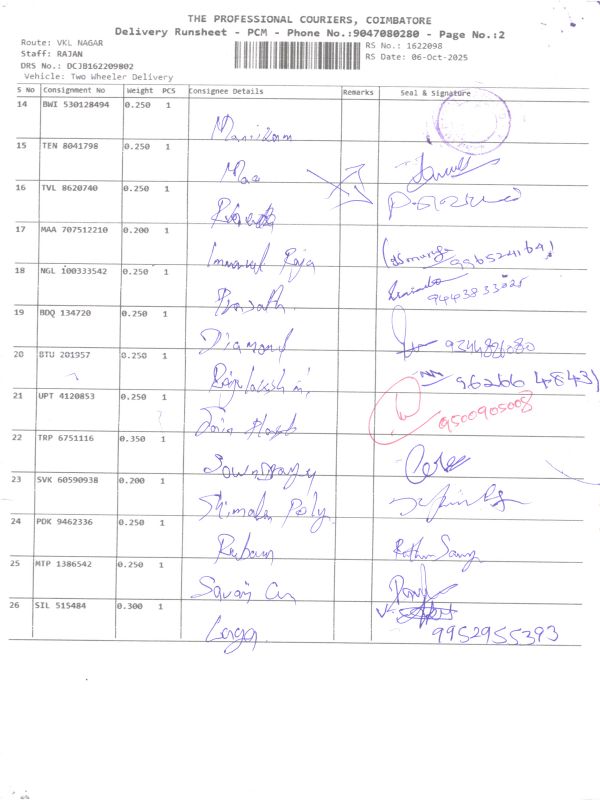 THE PROFESSIONAL COURIERS, COIMBATORE
Delivery Runsheet - PCM - Phone No.:9047080280 - Page No.:2
Route: VKL NAGAR
RS No.: 1622098
Staff: RAJAN
RS Date: 06-Oct-2025
DRS No.: DCJB162209802
Vehicle: Two Wheeler Delivery
S No Consignment No Weight PCS Consignee Details Remarks Seal & Signature
14 BWI 530128494 0.250 1
Manikam
15 TEN 8041798 0.250 1
Mac
16 TVL 8620740 0.250 1
17 MAA 707512210 0.200 1
Immanuel Raja
18 NGL 100333542 0.250 1
Prasath
9443833025
19 BDQ 134720 0.250 1
Diamond 9244886080
20 BTU 201957 0.250 1
Rajalakshmi
21 UPT 4120853 0.250 1
9500905008
22 TRP 6751116 0.350 1
23 SVK 60590938 0.200 1
Shimala Poly
24 PDK 9462336 0.250 1
Ruban
25 MTP 1386542 0.250 1
26 SIL 515484 0.300 1
9952955393